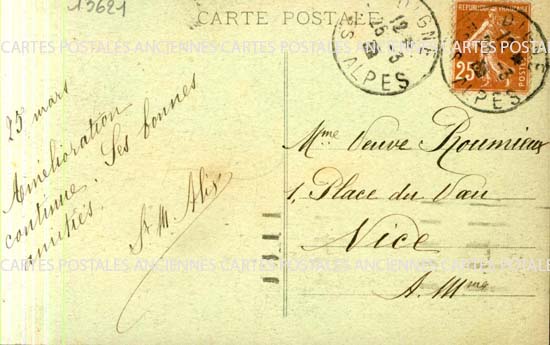 13621
CARTE POSTALE
DIGNE
12
16 3
SES ALPES
REPUBLIQUE FRANÇAISE
25
POSTES
CARTES POSTALES ANCIENNES CARTES POSTALES ANCIENNES CARTES POSTALES
25 mars
Amélioration
continue. Ses bonnes
amitiés.
Mme Veuve Roumieux
1, Place du Vau
Nice
A. Mmes
CARTES POSTALES ANCIENNES CARTES POSTALES ANCIENNES CARTES POSTALES